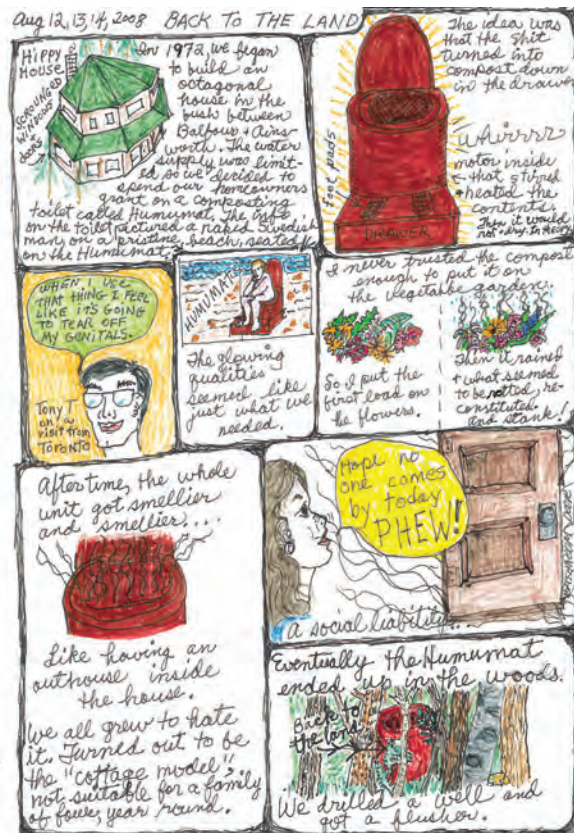 Aug 12, 13, 14, 2008 BACK TO THE LAND
HIPPY
HOUSE
SCROUNGED
WINDOWS
doors
In 1972, we began
to build an
octagonal
house in the
bush between
Balfour & Ains-
worth. The water
supply was limit-
ed so we decided to
spend our homeowners
grant on a composting
toilet called Humumat. The info
on the toilet pictured a naked Swedish
man, on a pristine beach, seated
on the Humumat.
foot pads
DRAWER
The idea was
that the shit
turned into
compost down
in the drawer
Whirrrr
motor inside
that stirred
& heated the
contents.
Then it would
rot & dry. In theory.
WHEN I USE
THAT THING I FEEL
LIKE IT'S GOING
TO TEAR OFF
MY GENITALS.
Tony T
on a
visit from
TORONTO
HUMUMAT
The glowing
qualities
seemed like
just what we
needed.
I never trusted the compost
enough to put it on
the vegetable garden.
So I put the
first load on
the flowers.
Then it rained
& what seemed
to be rotted, re-
constituted
and stank!
After time, the whole
unit got smellier
and smellier....
Like having an
outhouse inside
the house.
We all grew to hate
it. Turned out to be
the "cottage model",
not suitable for a family
of four, year round.
Hope no
one comes
by today
PHEW!
A social liability...
Eventually the Humumat
ended up in the woods.
Back to
the land
We drilled a well and
got a flusher.